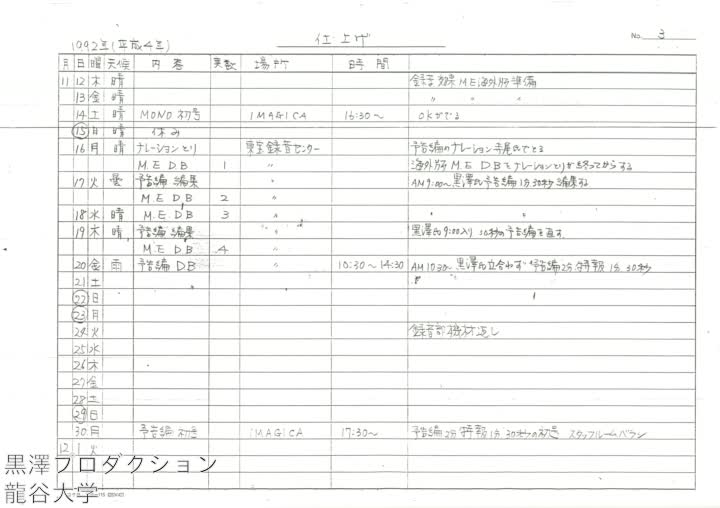 仕上げ
No. 3
1992年(平成4年)
月 日 曜 天候 内容 実数 場所 時間
11 12 木 晴 録音効果 M.E 海外版準備
13 金 晴 〃 〃 〃
14 土 晴 MONO 初号 IMAGICA 16:30〜 OKがでる
15 日 晴 休み
16 月 晴 ナレーションとり 東宝録音センター 予告編のナレーション寺尾氏でとる
M.E DB 1 〃 海外版 M.E DBをナレーションとりが終ってからする
17 火 曇 予告編 編集 〃 AM9:00〜黒澤氏予告編1分30秒編集する
M.E DB 2 〃
18 水 晴 M.E DB 3 〃 〃 〃
19 木 晴 予告編 編集 〃 黒澤氏9:00入り 30秒の予告編を直す
M.E DB 4 〃
20 金 雨 予告編 DB 〃 10:30〜14:30 AM10:30〜黒澤氏立合わず 予告編2分 特報1分 30秒
21 土
22 日
23 月
24 火 録音部機材返し
25 水
26 木
27 金
28 土
29 日
30 月 予告編 初号 IMAGICA 17:30〜 予告編2分 特報1分 30秒の初号 スタッフルームベラン
12 1 火
黒澤プロダクション
龍谷大学